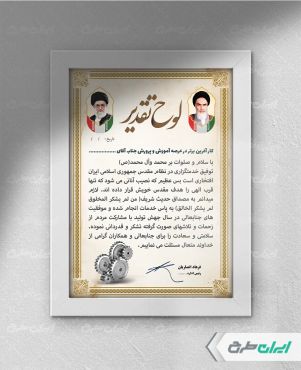 لوح تقدیر
تاریخ:
کارآفرین برتر در عرصه آموزش و پرورش جناب آقای
با سلام و صلوات بر محمد وآل محمد(ص)
توفیق خدمتگزاری در نظام مقدس جمهوری اسلامی ایران
افتخاری است بس عظیم که نصیب آنانی می شود که تنها
قرب الهی را هدف مقدس خویش قرار داده اند. لازم
میدانم به مصداق حدیث شریف( من لم یشکر المخلوق
لم یشکر الخالق) به پاس خدمات انجام شده و موفقیت
های جنابعالی در سال جهش تولید با مشارکت مردم از
زحمات و تلاشهای صورت گرفته تشکر و قدردانی نموده،
سلامتی و سعادت را برای جنابعالی و همکاران گرامی از
خداوند متعال مسئلت می نمایم.
فرهاد انصاریان
ایران طرح